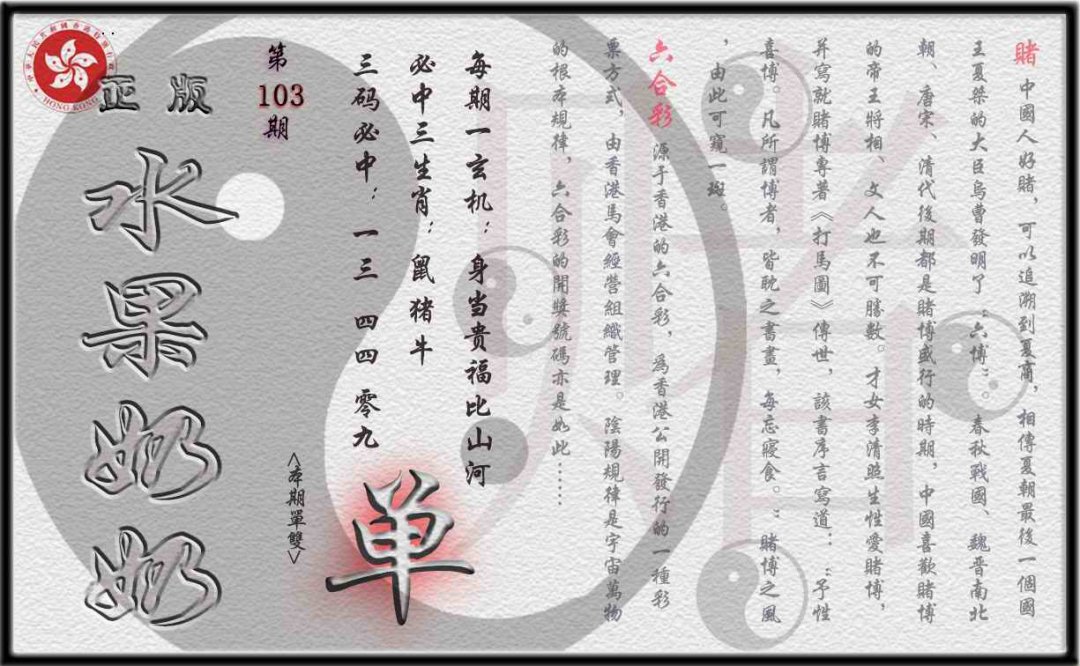 賭 中國人好賭，可以追溯到夏商，相傳夏朝最後一個國
王夏桀的大臣烏曹發明了“六博”。春秋戰國、魏晉南北
朝、唐宋、清代後期都是賭博盛行的時期，中國喜歡賭博
的帝王將相、文人也不可勝數。才女李清照生性愛賭博，
并寫就賭博專著《打馬圖》傳世，該書序言寫道：“予性
喜博。凡所謂博者，皆耽之書畫，每忘寢食。”賭博之風
，由此可窺一斑。
六合彩 源于香港的六合彩，為香港公開發行的一種彩
票方式，由香港馬會經營組織管理。陰陽規律是宇宙萬物
的根本規律，六合彩的開獎號碼亦是如此……
每期一玄机：身当贵福比山河
必中三生肖：鼠猪牛
三码必中：一三 四四 零九
单
第103期
<本期單雙>
正版
水果奶奶
HONG KONG